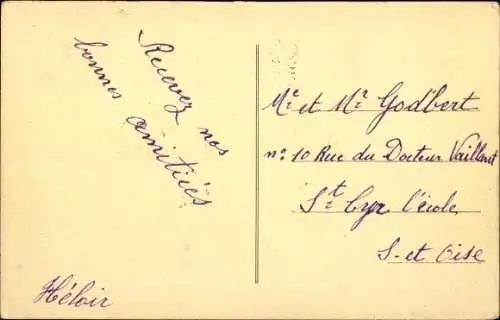 Recevez nos
bonnes amitiés
Héloir
Mr et Mr Godbert
no 10 Rue du Docteur Vaillant
St Cyr l'école
S. et Oise